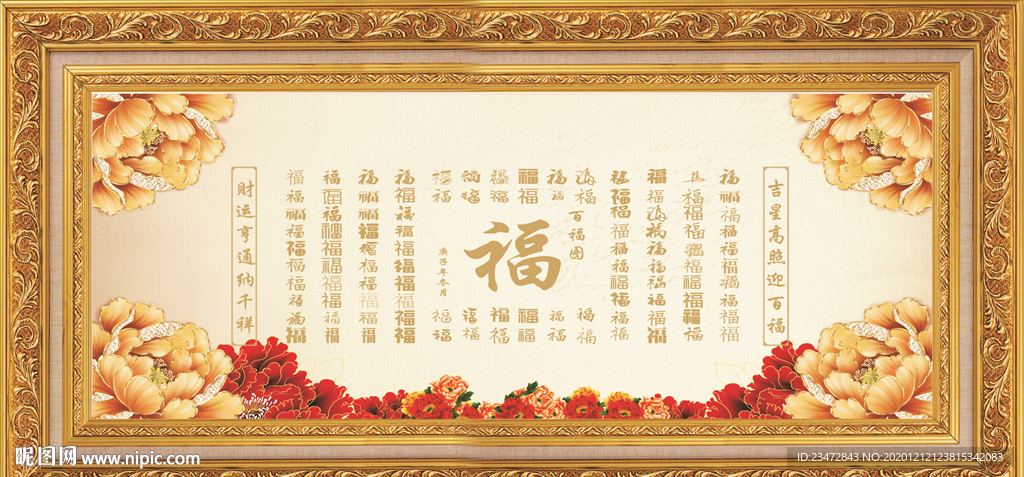 吉星高照迎百福
福福福福福福福福福福
福福福福福福福福福福
福福福福福福福福福福
福福福福福福福福福福
福福
福福
福福
福福
福福
福福
百福图
福
庚子年冬月
福福
福福
福福
福福
福福
福福
福福福福福福福福福福
福福福福福福福福福福
福福福福福福福福福福
福福福福福福福福福福
财运亨通纳千祥
昵图网 www.nipic.com
ID:23472843 NO:20201212123815342083